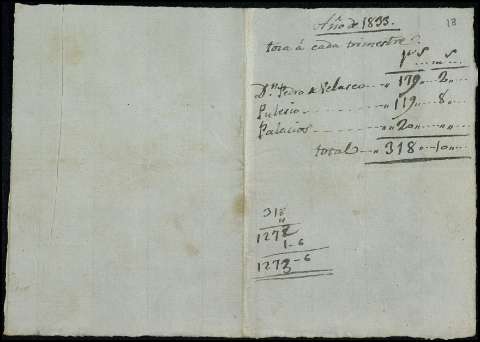 Año de 1833.
13
toca á cada trimestre
Dn. Pedro de Velasco 179 2
119 8
Palacios 20
total 318 10
318
4
1272
1-6
1273-6